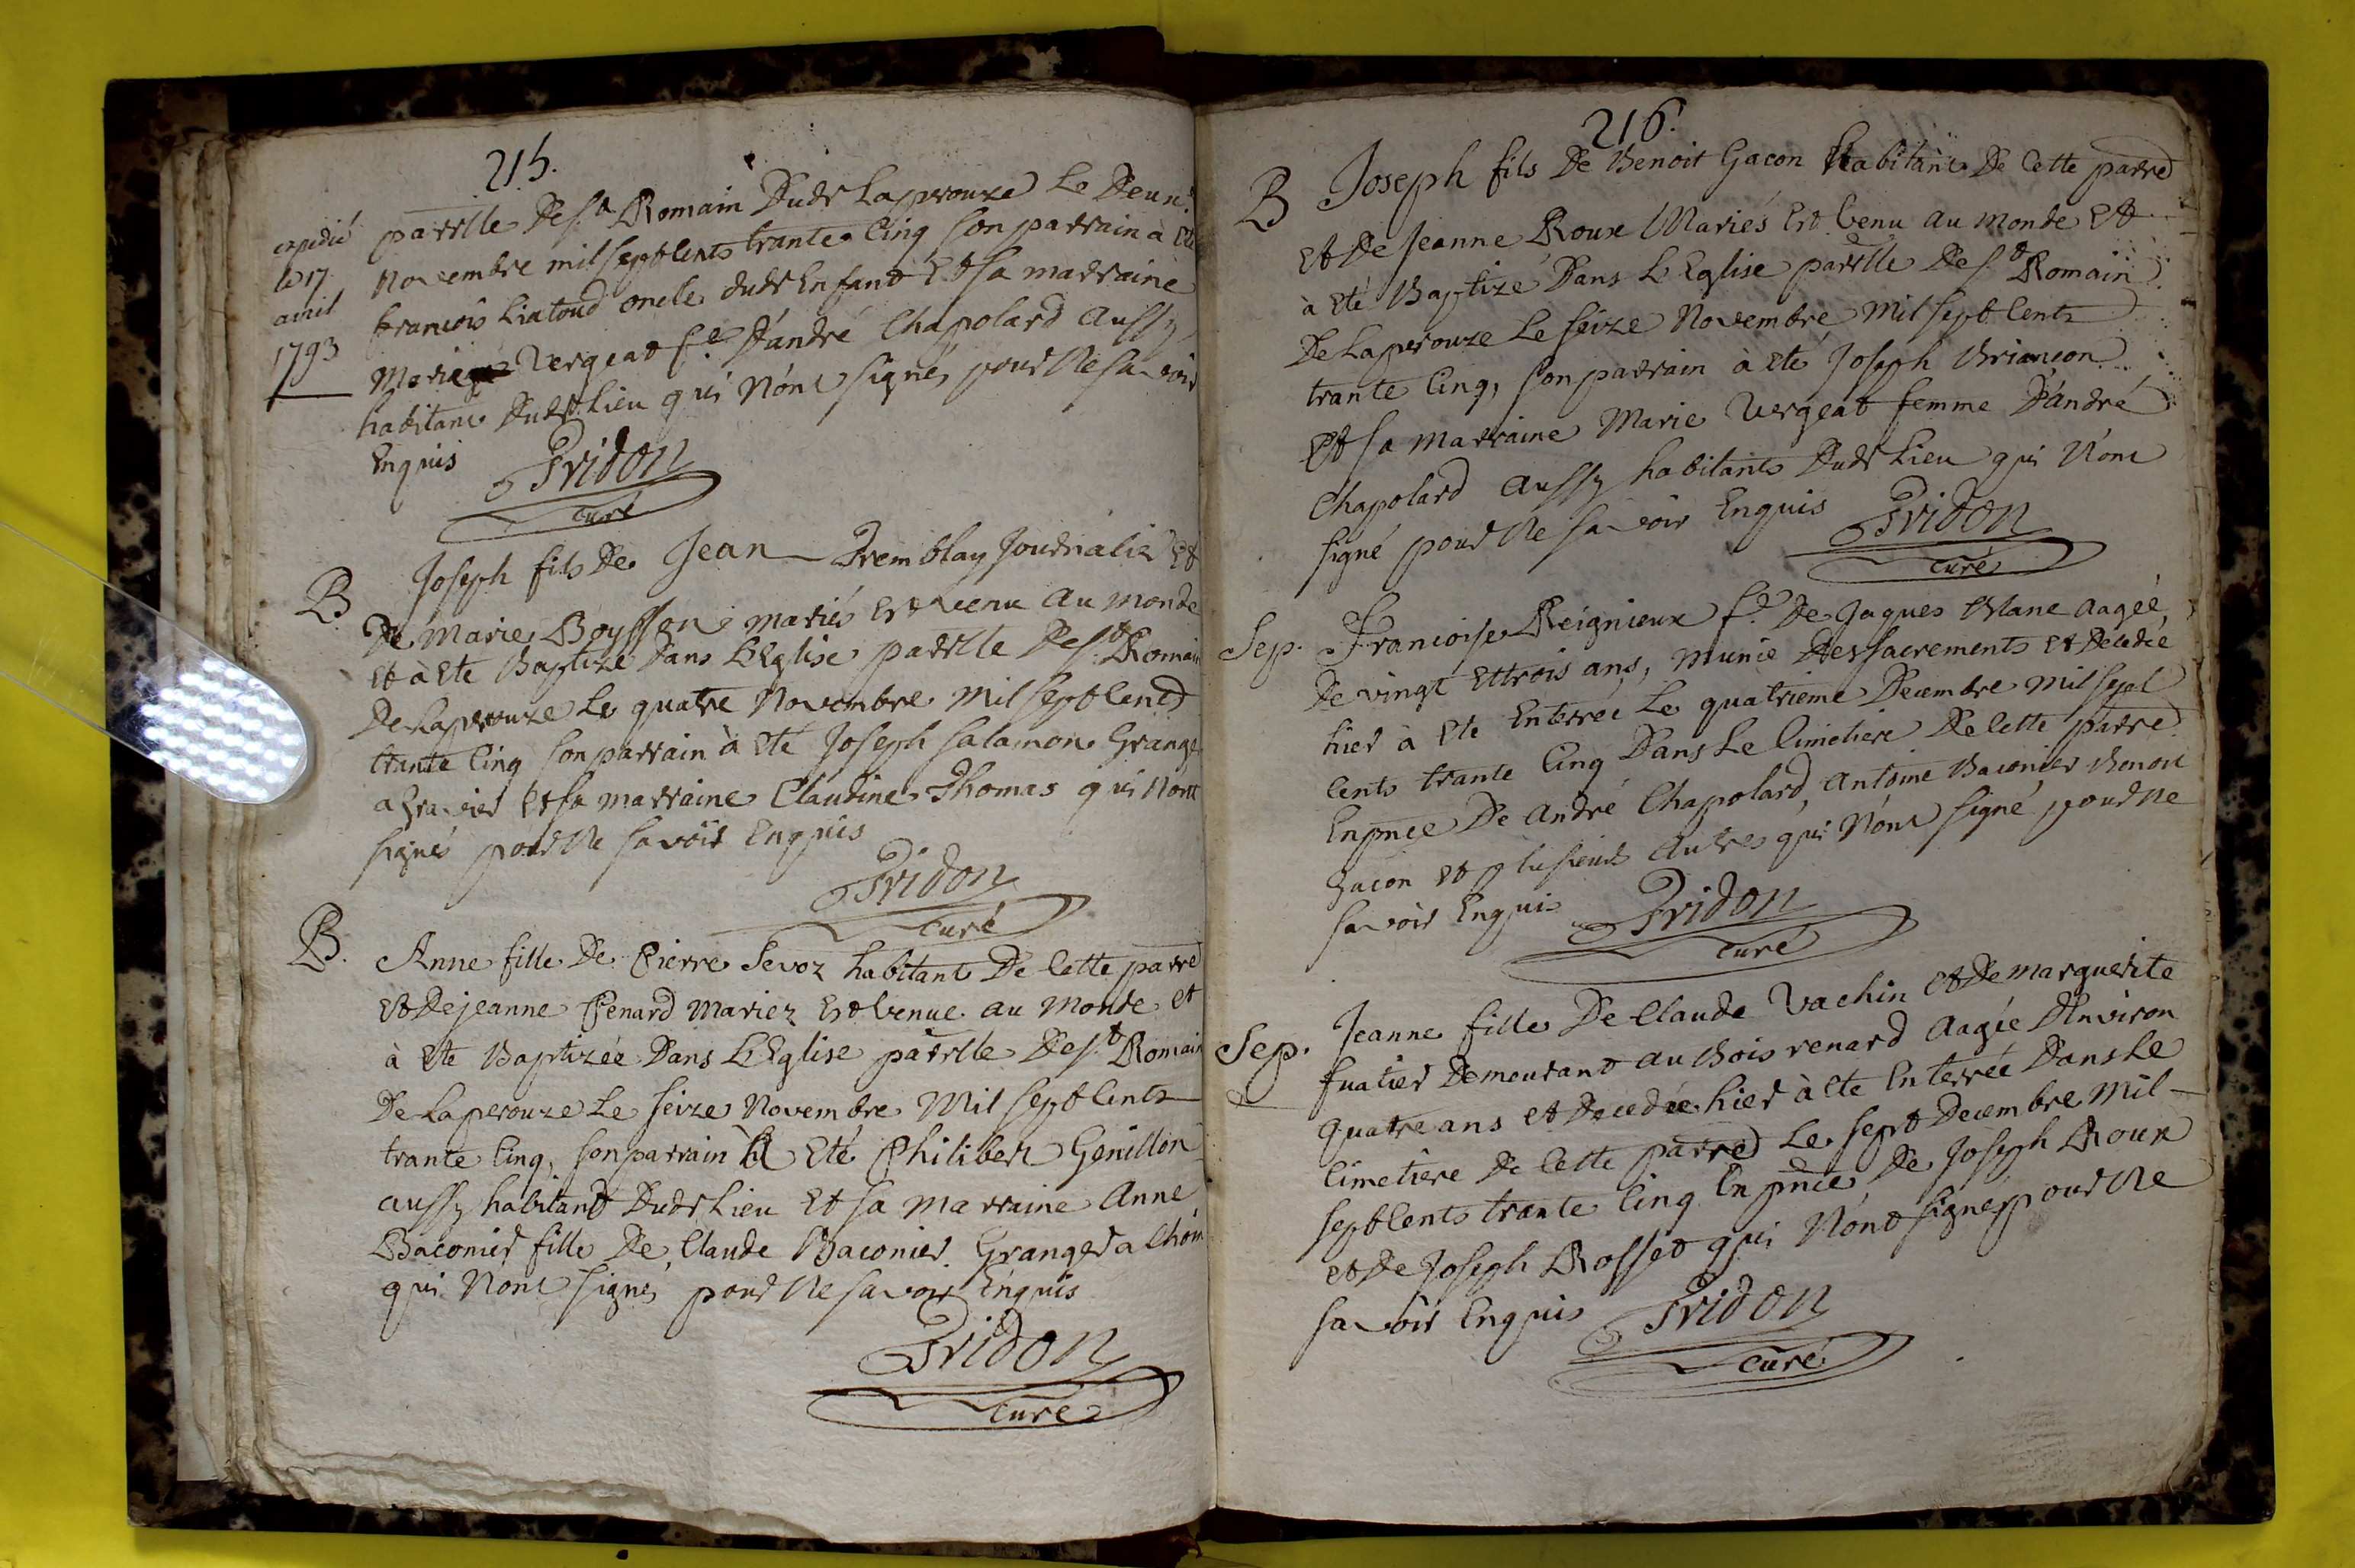 215.
expedié
le 17
avril
1793
parrlle De st Romain Dudt Laperouze Le Deux
Novembre mil sept Cents trante Cinq son parrain à Eté
francois Liatoud oncle dudt Enfant Et sa marraine
Marie Vergeat fe D'andré Chapolard aussy
habitant Dudt Lieu qui N'ont signés pour Ne savoir
Enquis
Pridon
curé
B
Joseph fils De Jean Tremblay Journalier Et
De Marie Boysson mariés Est venu au monde
Et à Ete Baptizé Dans L'Eglise parrlle De st Romain
De Laperouze Le quatre Novembre Mil sept Cents
trante Cinq son parrain à Eté Joseph salamon Granger
a Et sa marraine Claudine Thomas qui Nont
signés pour Ne savoir Enquis
Pridon
curé
B.
Anne fille De Pierre Sevoz habitant De Cette parre
Et De jeanne Penard Mariez Est Venue au Monde Et
à Ete Baptizée Dans L'Eglise parrlle De st Romain
De Laperouze Le seize Novembre Mil sept Cents
trante Cinq, son parrain à Eté Philibert Genillon
aussy habitant Dudt Lieu Et sa Marraine Anne
Baconier fille De Claude Baconier Granger a
qui Nont signés pour Ne savoir Enquis
Pridon
curé
216.
B
Joseph fils De Benoit Gacon habitant De Cette parre
Et De Jeanne Roux Mariés Est Venu au Monde Et
à Eté Baptizé Dans L'Eglise parrlle De st Romain
De Laperouze Le seize Novembre Mil sept Cents
trante Cinq, son parrain à Eté Joseph Briançon
Et sa Marraine Marie Vergeat femme D'andré
Chapolard aussy habitants Dudt Lieu qui N'ont
signé pour Ne savoir Enquis
Pridon
curé
Sep.
Francoise Reignieux fe De Jaques Blanc aagée
De vingt et trois ans, munie Des sacrements et Decedée
hier à Ete Enterrée Le quatrieme Decembre mil sept
Cents trante Cinq Dans Le Cimetiere De Cette parre
En pnce De andré Chapolard, antoine Baconier Benoit
Gacon et plusieurs autres qui N'ont signé pour Ne
savoir Enquis
Pridon
curé
Sep.
Jeanne fille De Claude Vachin et De marguerite
fuatier Demeurant au Bois renard aagée D'Environ
quatre ans et Decedée hier à Ete Enterrée Dans Le
Cimetiere De Cette parre Le sept Decembre Mil
sept Cents trante Cinq En pnce De Joseph Roux
et De Joseph Rosset qui N'ont signés pour Ne
savoir Enquis
Pridon
curé